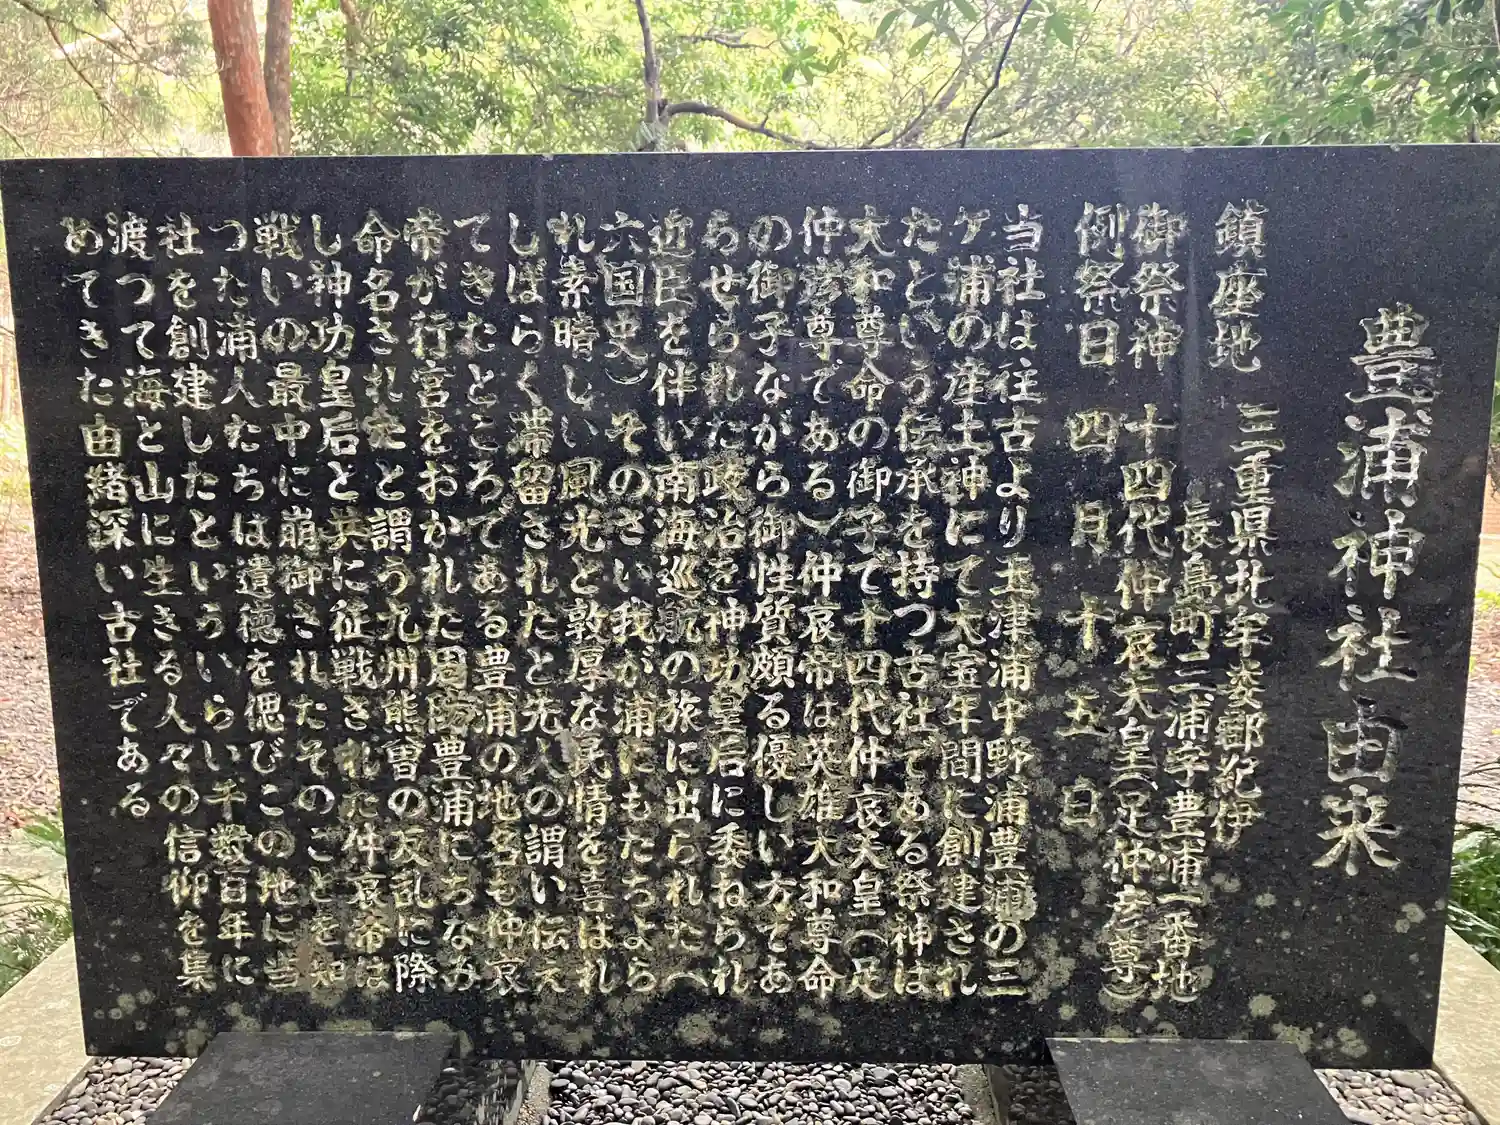 豊浦神社由来
鎮座地 三重県北牟婁郡紀伊
長島町三浦字豊浦一番地
御祭神 十四代仲哀天皇(足仲彦尊)
例祭日 四月十五日
当社は往古より玉津浦中野浦豊浦の三
ケ浦の産土神にて大宝年間に創建され
たという伝承を持つ古社である祭神は
大和尊命の御子で十四代仲哀天皇(足
仲彦尊である)仲哀帝は英雄大和尊命
の御子ながら御性質頗る優しい方であ
らせられた政治を神功皇后に委ねられ
近臣を伴い南海巡航の旅に出られた(
六国史)そのさい我が浦にもたちよら
れ素晴しい風光と敦厚な民情を喜ばれ
しばらく滞留されたと先人の謂い伝え
てきたところである豊浦の地名も仲哀
帝が行宮をおかれた周防豊浦にちなみ
命名されたと謂う九州熊曽の反乱に際
し神功皇后と共に征戦された仲哀帝は
戦いの最中に崩御されたそのことを知
つた浦人たちは遺徳を偲びこの地に当
社を創建したといういらい千数百年に
渡つて海と山に生きる人々の信仰を集
めてきた由緒深い古社である